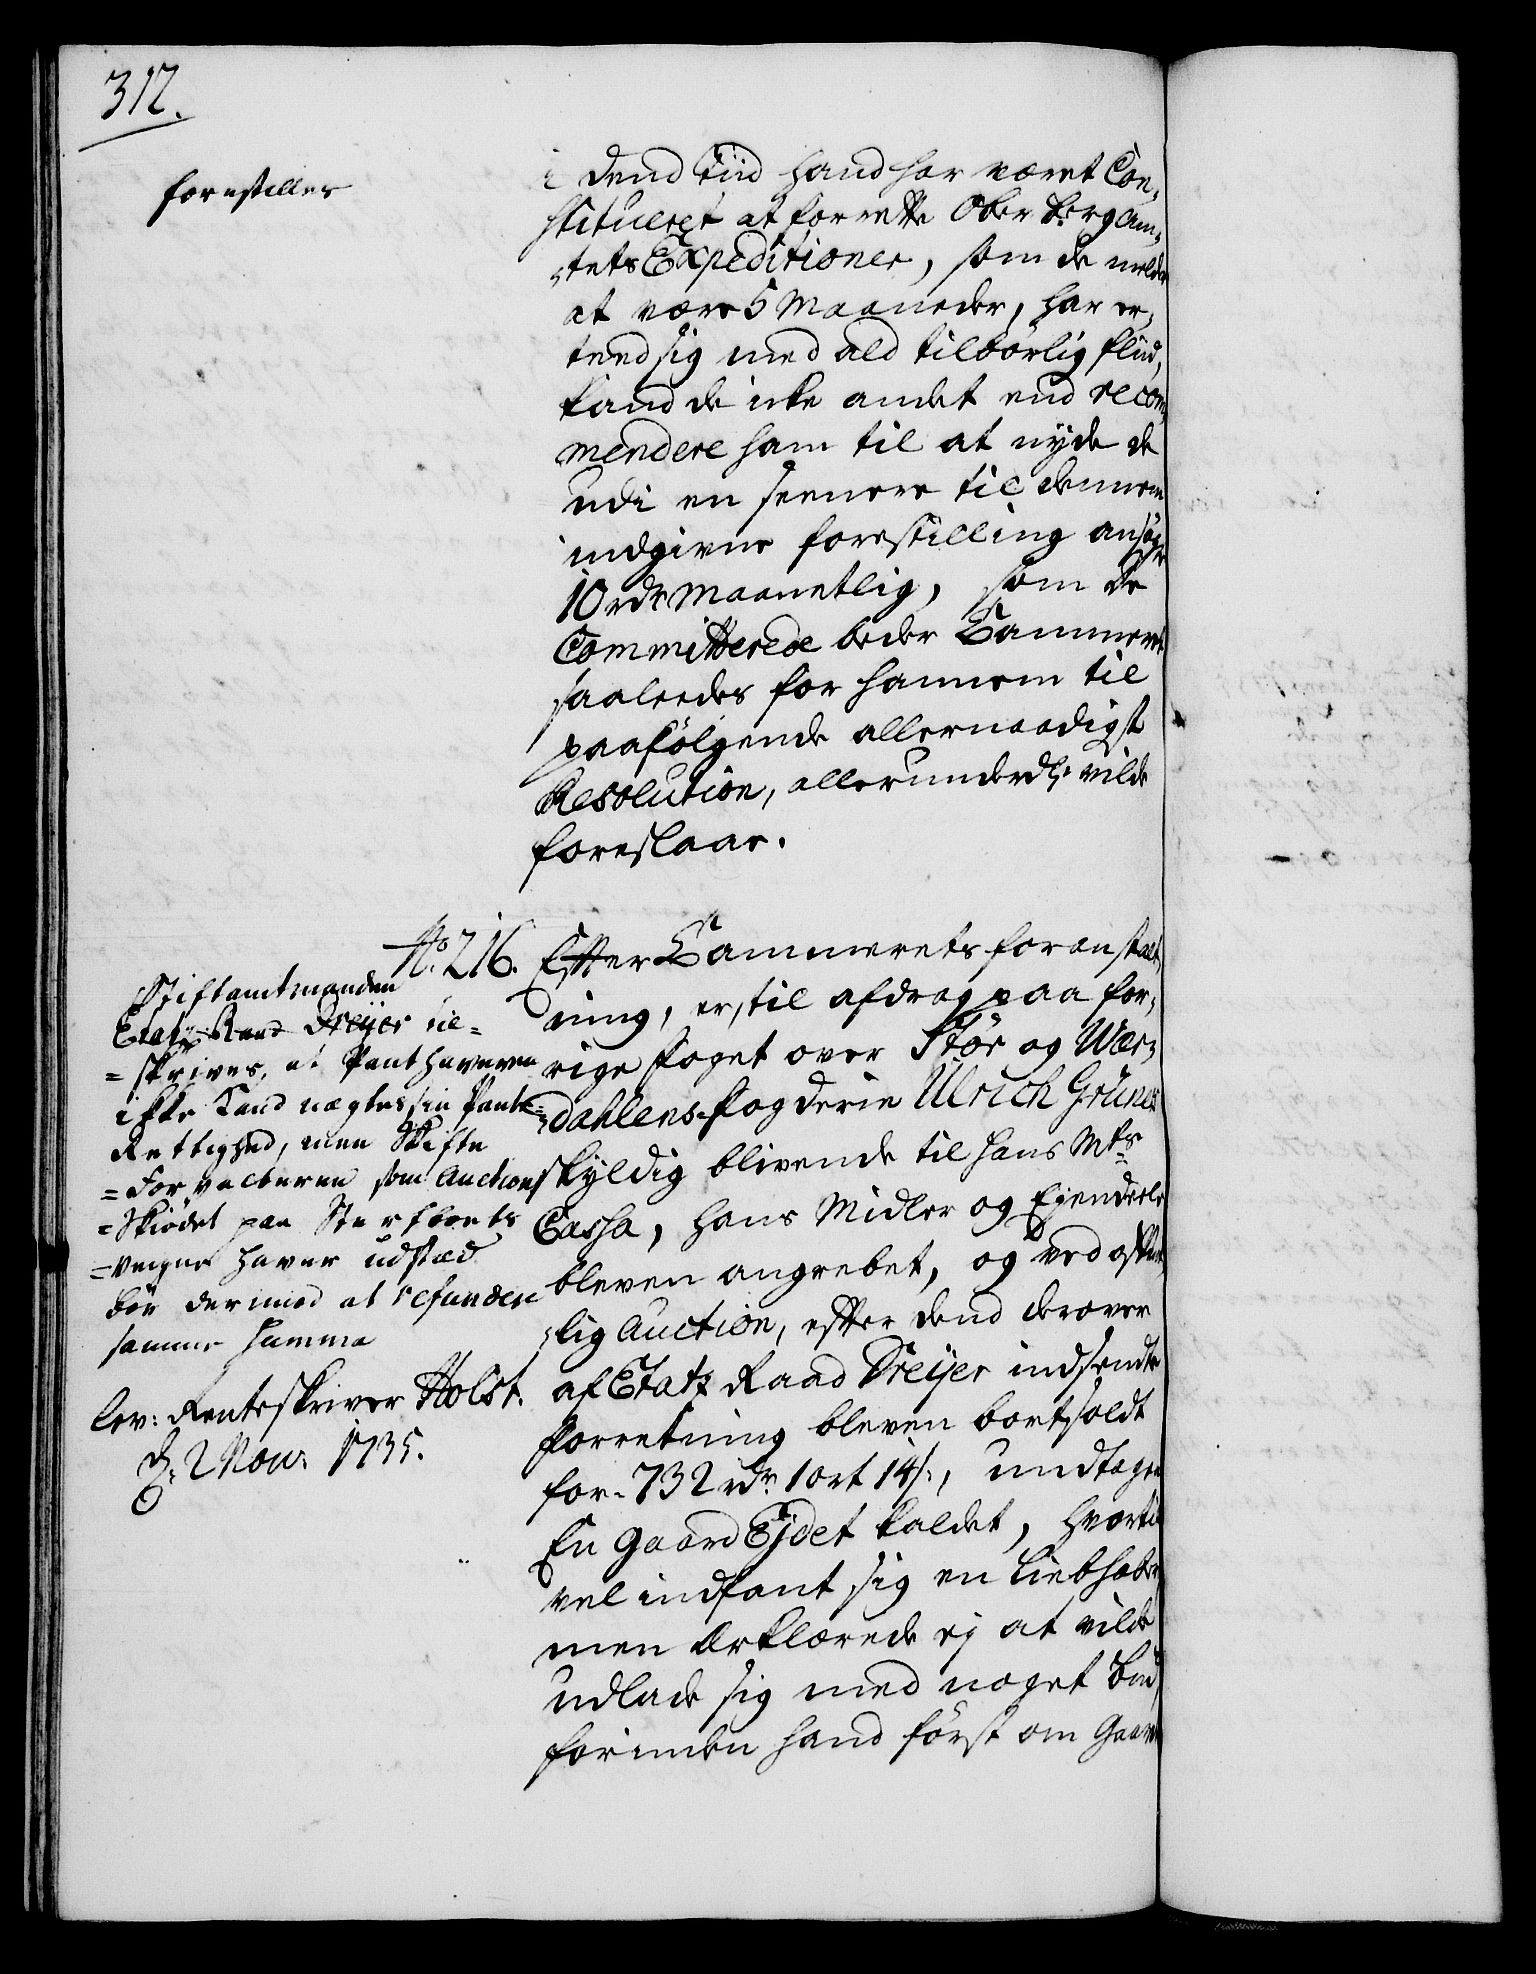 312.
forestilles
i dend tiid hand har været Con¬
stitueret at forrette Ober Bergam¬
tets Expeditioner, som de melder
at være 5 Maaneder, har er¬
teed sig med ald tilbørlig fliid,
kand de icke andet end recom¬
mendere ham til at nyde de
udi en seenere til dennem
indgivne forestilling ansøgte
10 rdr Maanetlig, som de
Committerede beder Cammeret
saaleedes for hannem til
paafølgende allernaadigst
Resolution, allerunderd: vilde
foreslaae.
No. 216.
Stiftamtmanden
Etatz Raad Dreyer til=
=skrives, at Panthaveren
ikke Kand nægtes sin Pante=
Rettighed, men Skifte
=Forvalteren som Auctions
=Skiødet paa Sterfboets
=vegne haver udstæd
bør derimod at refundere
samme Summa
lev: Renteskriver Holst.
d. 2 Nov: 1735.
Efter Cammerets foranstalt¬
ning, er, til afdrag paa for¬
rige foget over Stør og Wær¬
dahlens fogderie Ulrich Grüners
skyldig blivende til Hans Mts
Cassa, hans Midler og Ejendeele
bleven angrebet, og ved offent¬
lig Auction, efter dend derover
af Etatz Raad Dreyer indsendte
forretning bleven bortsoldt
for 732 rdr 1 ort 14 s:, undtagen
En Gaard Ejdet kaldet, hvortil
vel indfant sig en Liebhaber
men Erklærede ej at vilde
udlade sig med noget bud,
forinden hand først om Gaarden